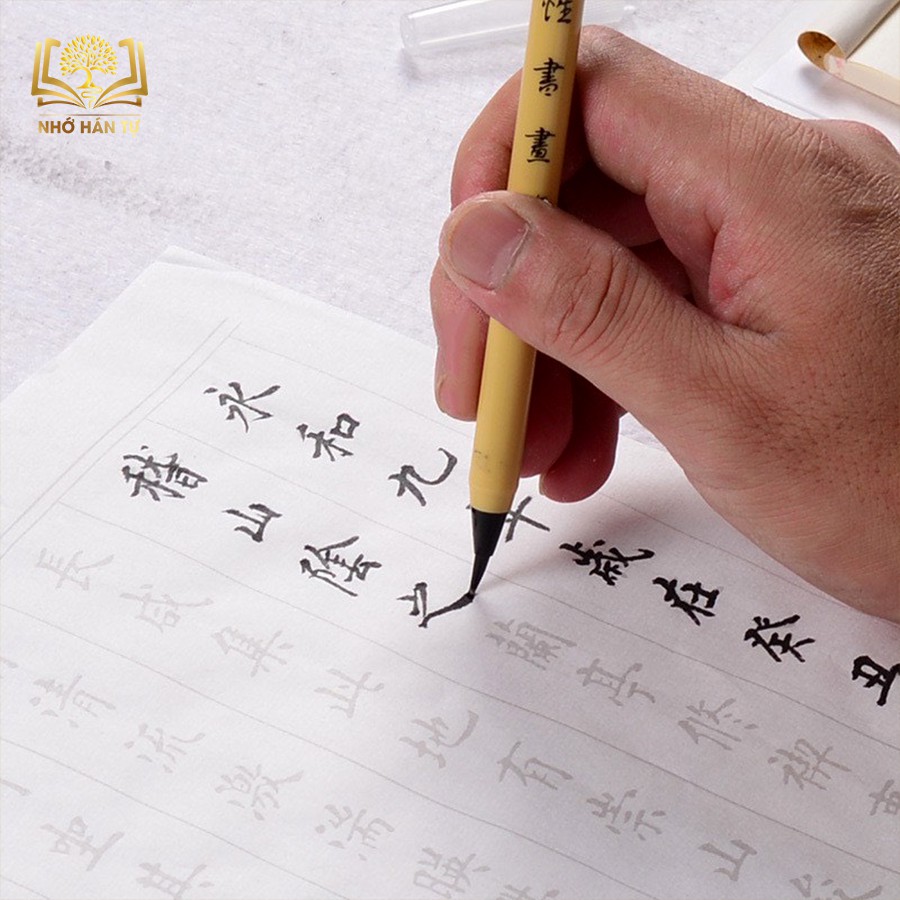 NHỚ HÁN TỰ
性書畫
永和九年歲在癸丑
稽山陰之蘭亭脩禊
長咸集此地有崇山
清流激湍暎
坐其